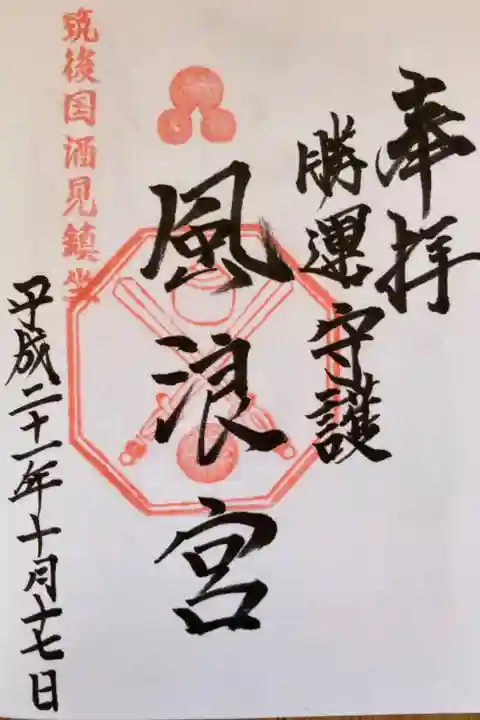 奉拝
勝運守護
風浪宮
筑後国酒見鎮坐
平成二十一年十月十七日